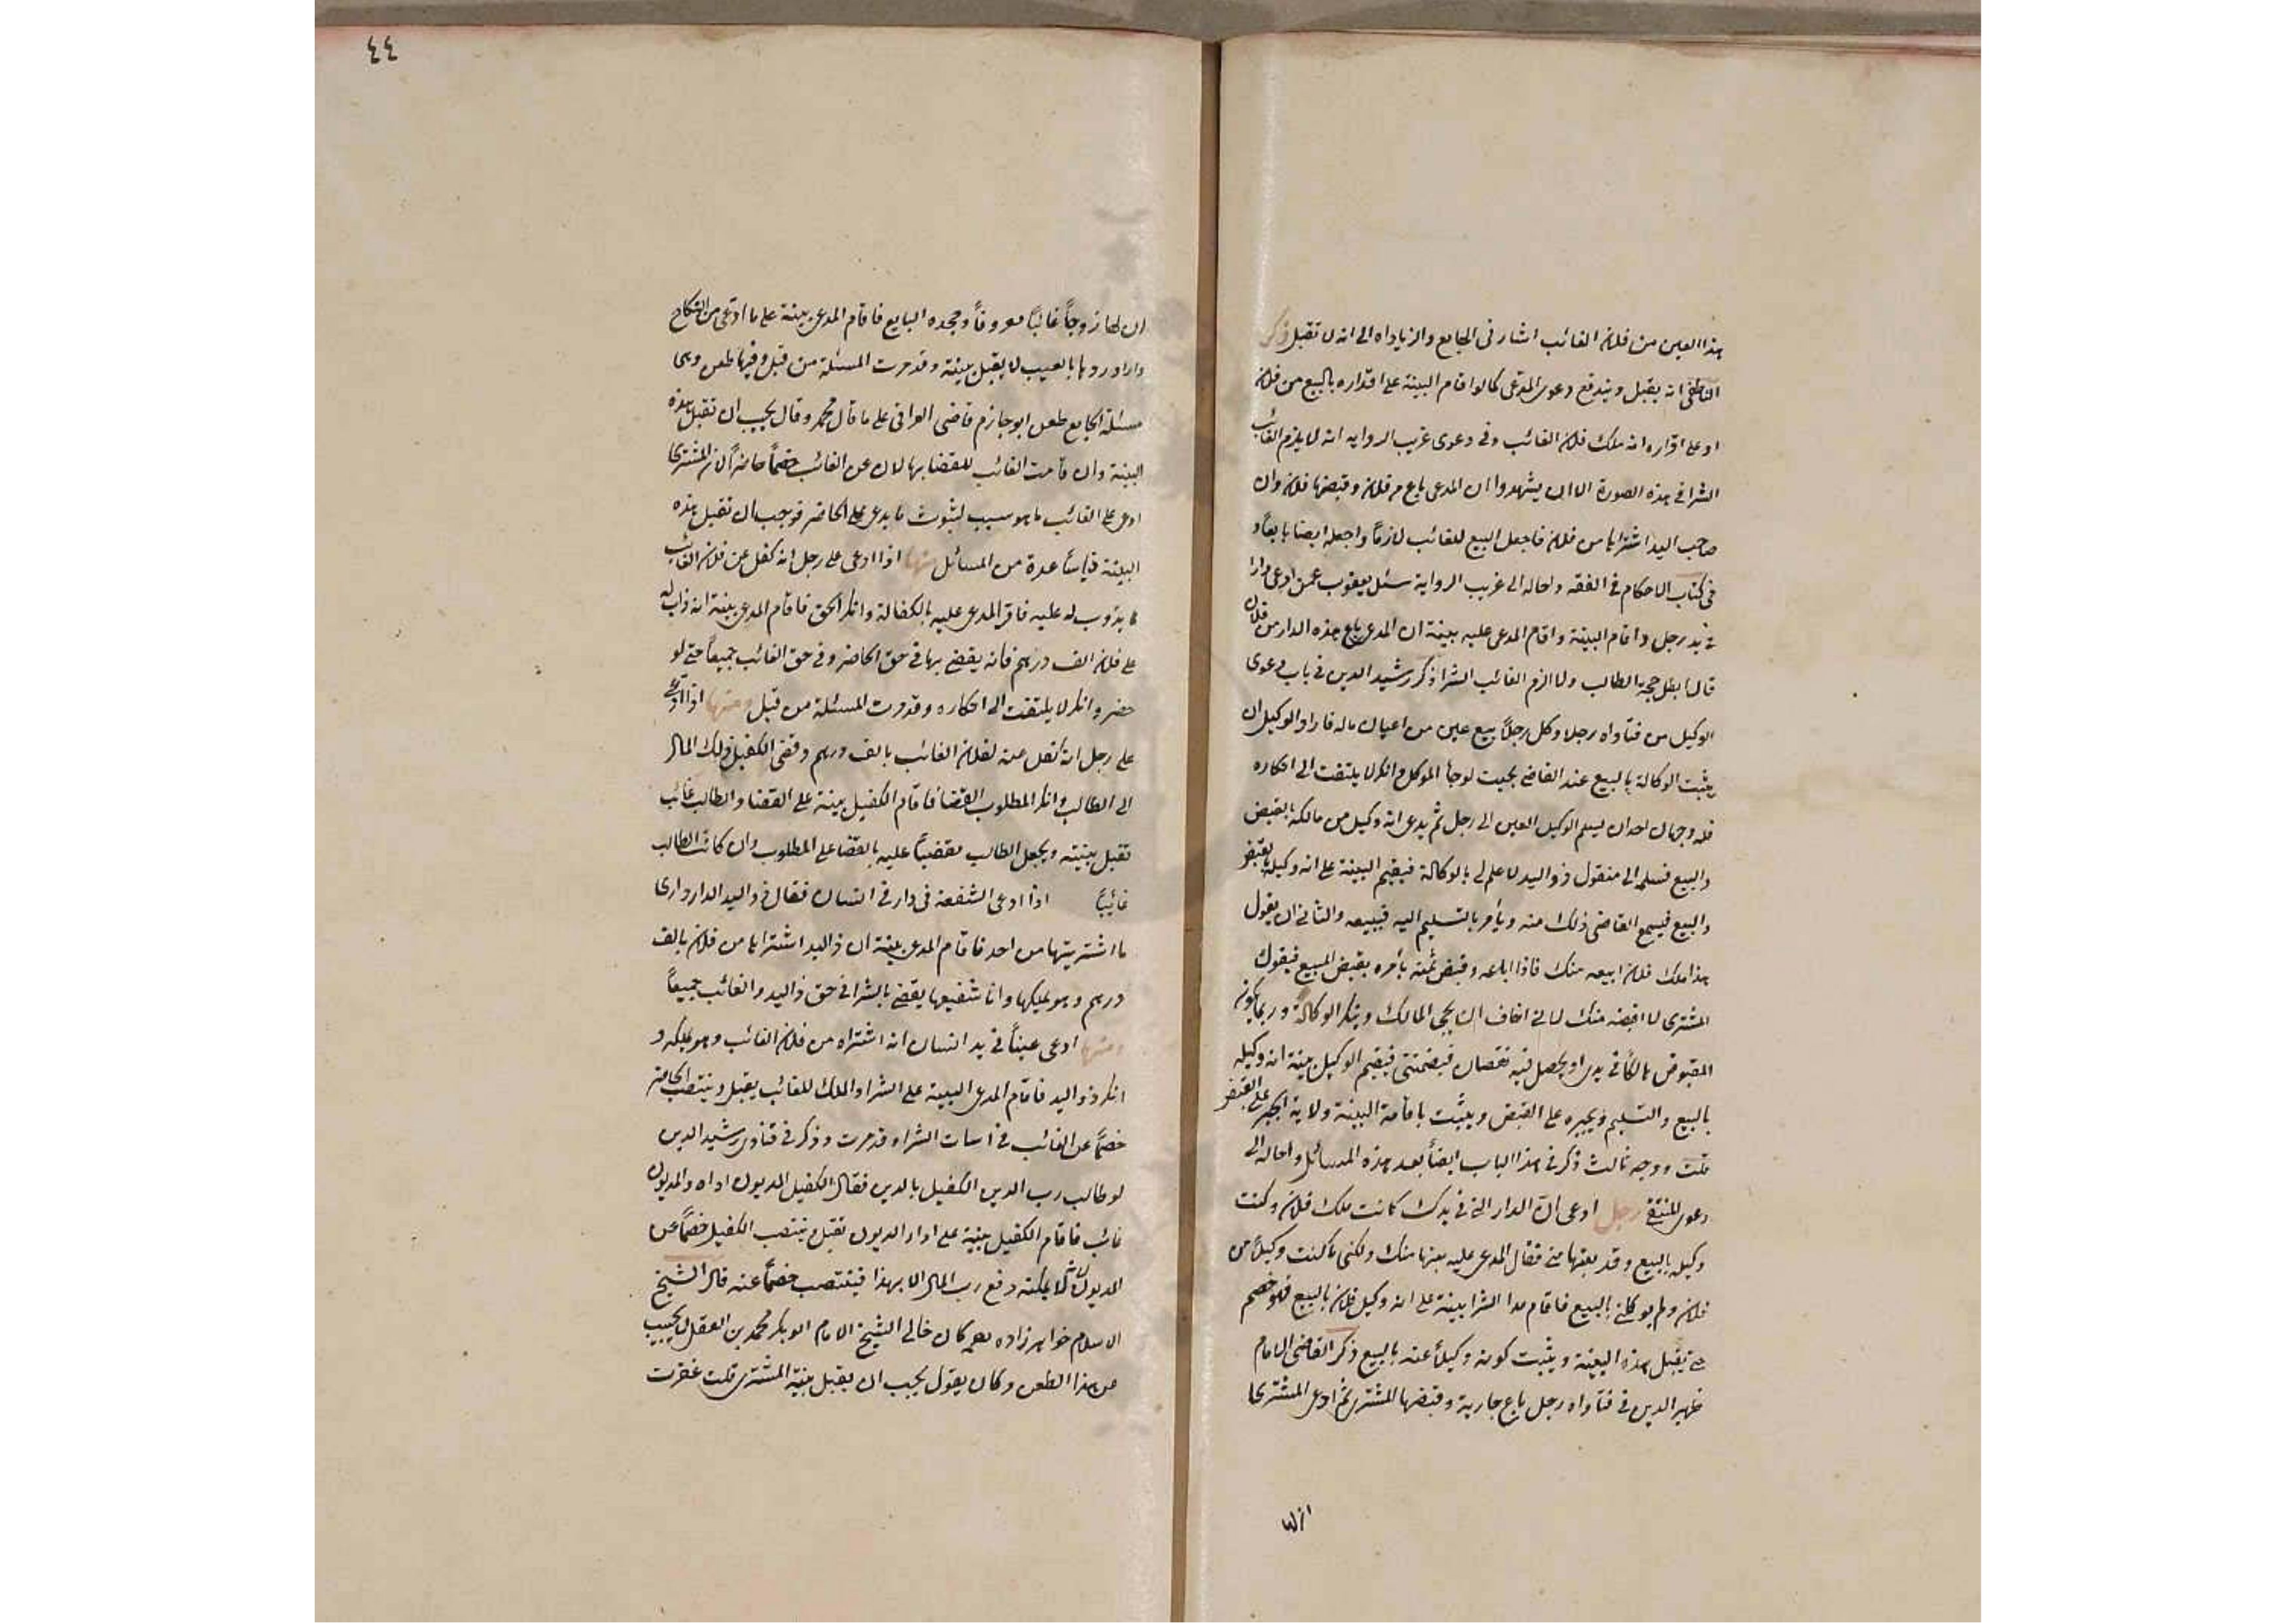 هذا العين من فلان الغائب اشار فى الجامع والزياداه الى انه لا تقبل ذكر
الناطفى انه يقبل ويندفع دعوى المدعى كما لو اقام البينة على اقراره بالبيع من فلان
او على اقراره انه ملك فلان الغائب وفى دعوى غريب الروايه انه لا يلزم الغائب
الشرا فى هذه الصورة الا ان يشهدوا ان المدعى باع من فلان وقبضها فلان وان
صاحب اليد اشتراها من فلان فاجعل البيع للغائب لازماً واجعله ايضا بايعاً و
فى كتاب الاحكام فى الفقه واحاله الى غريب الرواية سئل يعقوب عمن ادعى دارا
فى يد رجل واقام البينة واقام المدعى عليه بينة ان المدعى باع هذه الدار من فلان
قال ابطل حجة الطالب ولا الزم الغائب الشرا ذكر رشيد الدين فى باب دعوى
الوكيل من فتاواه رجلا وكل رجلاً ببيع عين من اعيان ماله فاراد الوكيل ان
يثبت الوكالة بالبيع عند القاضى بحيث لو جا الموكل وانكر لا يلتفت الى انكاره
فله وجهان احدان يسلم الوكيل العين الى رجل ثم يدعى انه وكيل من مالكه بالقبض
والبيع فسلمه الى فيقول ذو اليد لا علم لى بالوكالة فيقيم البينة على انه وكيله بالقبض
والبيع فيسمع القاضى ذلك منه ويأمر بالتسليم اليه فيبيعه والثانى ان يقول
هذا ملك فلان ابيعه منك فاذا اباعه وقبض ثمنه يأمره بقبض المبيع فيقول
المشترى لا اقبضه منك لانى اخاف ان يجى المالك وينكر الوكالة وربما يكون
المقبوض هالكا فى يدى او يحصل فيه نقصان فيضمنى فيقيم الوكيل بينة انه وكيله
بالبيع والتسليم ويجبره على القبض ويثبت باقامة البينة ولاية الجبر على القبض
قلت ووجه ثالث ذكر فى هذا الباب ايضاً بعد هذه المسائل واحاله الى
دعوى المنتقى رجل ادعى ان الدار التى فى يدك كانت ملك فلان وكنت
وكيله بالبيع وقد بعتها منى فقال المدعى عليه بعتها منك ولكنى ما كنت وكيلاً من
فلان ولم يوكلنى بالبيع فاقام مدا الشرا بينة على انه وكيل فلان بالبيع فهو خصم
حتى تقبل هذه البينة ويثبت كونه وكيلاً عنه بالبيع ذكر القاضى الامام
ظهير الدين فى فتاواه رجل باع جارية وقبضها المشترى ثم ادعى المشترى
ان لها
٤٤
ان لها زوجاً غائباً معروفاً وجحده البايع فاقام المدعى بينة على ما ادعى من النكاح
واراد ردها بالعيب لا يقبل بينة وقد مرت المسئلة من قبل وفيها طعن وهى
مسئلة الجامع طعن ابو حازم قاضى العراق على ما قال محمد وقال يجب ان تقبل هذه
البينة وان قامت الغائب للقضا بها لان عن الغائب خصماً حاضراً لان المشترى
ادعى على الغائب ما هو سبب لثبوت ما يدعى على الحاضر فوجب ان تقبل هذه
البينة قياساً عدة من المسائل منها اذا ادعى على رجل انه كفل عن فلان الغائب
ما يذوب له عليه فاقر المدعى عليه بالكفالة وانكر الحق فاقام المدعى بينة انه ذاب له
على فلان الف درهم فانه يقضى بها فى حق الحاضر وفى حق الغائب جميعاً حتى لو
حضر وانكر لا يلتفت الى انكاره وقد مرت المسئلة من قبل ومنها اذا ادعى
على رجل انه كفل عنه لفلان الغائب بالف درهم وقضى الكفيل ذلك المال
الى الطالب وانكر المطلوب القضا فاقام الكفيل بينة على القضا والطالب غائب
تقبل بينته ويجعل الطالب مقضياً عليه بالقضا على المطلوب وان كان الطالب
غائباً اذا ادعى الشفعة فى دار فى انسان فقال ذو اليد الدار دارى
ما اشتريتها من احد فاقام المدعى بينة ان ذا اليد اشتراها من فلان بالف
درهم وهو يملكها وانا شفيعها يقضى بالشرا فى حق ذا اليد والغائب جميعاً
ومنها ادعى عيناً فى يد انسان انه اشتراه من فلان الغائب وهو يملكه و
انكر ذو اليد فاقام المدعى البينة على الشرا والملك للغائب يقبل وينتصب الحاضر
خصماً عن الغائب فى اسات الشرا وقد مرت وذكر فى فتاوى رشيد الدين
لو طالب رب الدين الكفيل بالدين فقال الكفيل المديون اداه والمديون
غائب فاقام الكفيل بينة على ادا المديون تقبل وينتصب الكفيل خصماً عن
المديون لانه لا يمكنه دفع رب المال الا بهذا فينتصب خصماً عنه قال الشيخ
الاسلام خواهر زاده كان خالى الشيخ الامام ابو بكر محمد بن الفضل يجيب
عن هذا الطعن وكان يقول يجب ان يقبل بينة المشترى قلت